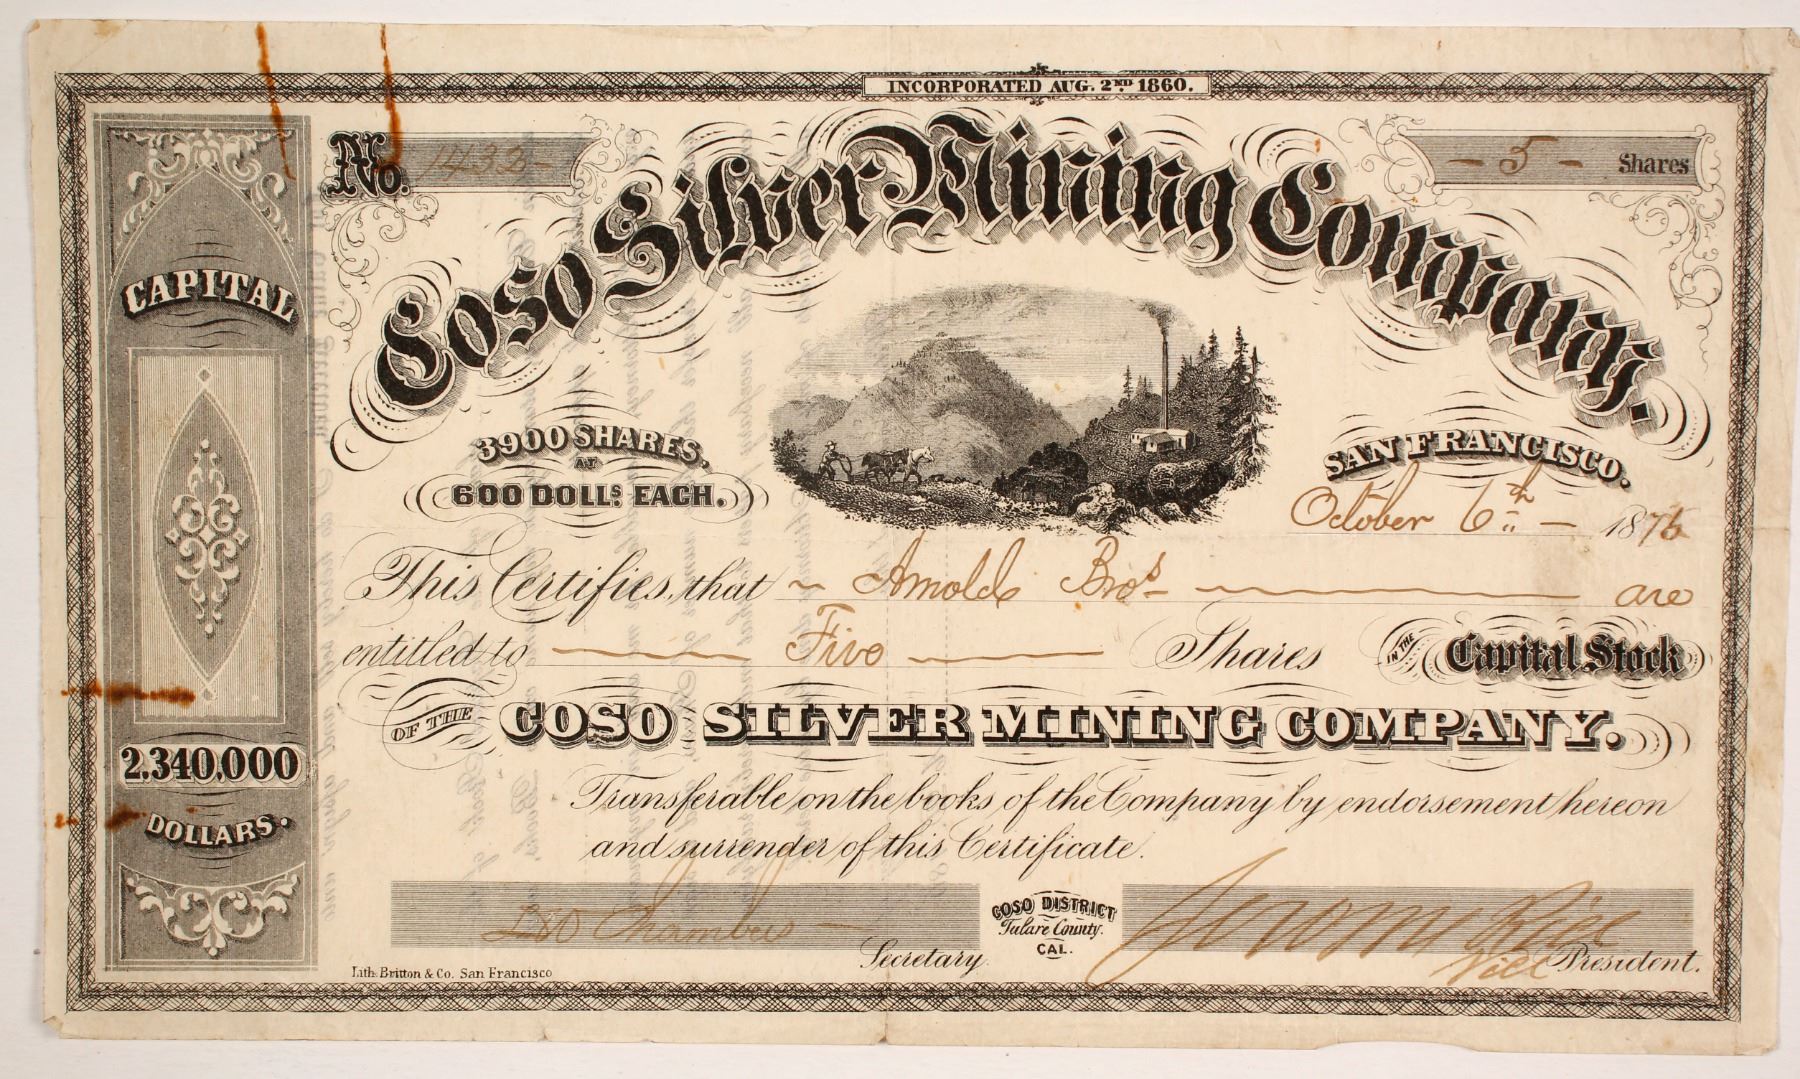 INCORPORATED AUG. 2ND 1860.
No. 1433-
- 5 - Shares
Coso Silver Mining Company.
CAPITAL
2.340.000
DOLLARS.
3900 SHARES,
AT
600 DOLLS EACH.
SAN FRANCISCO.
October 6th - 1875
This Certifies, that ~ Arnold Bros - are
entitled to Five Shares IN THE Capital Stock
OF THE COSO SILVER MINING COMPANY.
Transferable on the books of the Company by endorsement hereon
and surrender of this Certificate.
Chambers
Secretary.
COSO DISTRICT
Tulare County.
CAL.
Jerom Rice
Vice President.
Lith. Britton & Co. San Francisco